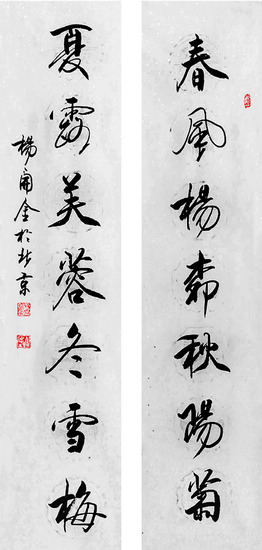 春風楊柳秋陽菊
夏露芙蓉冬雪梅
楊金於北京